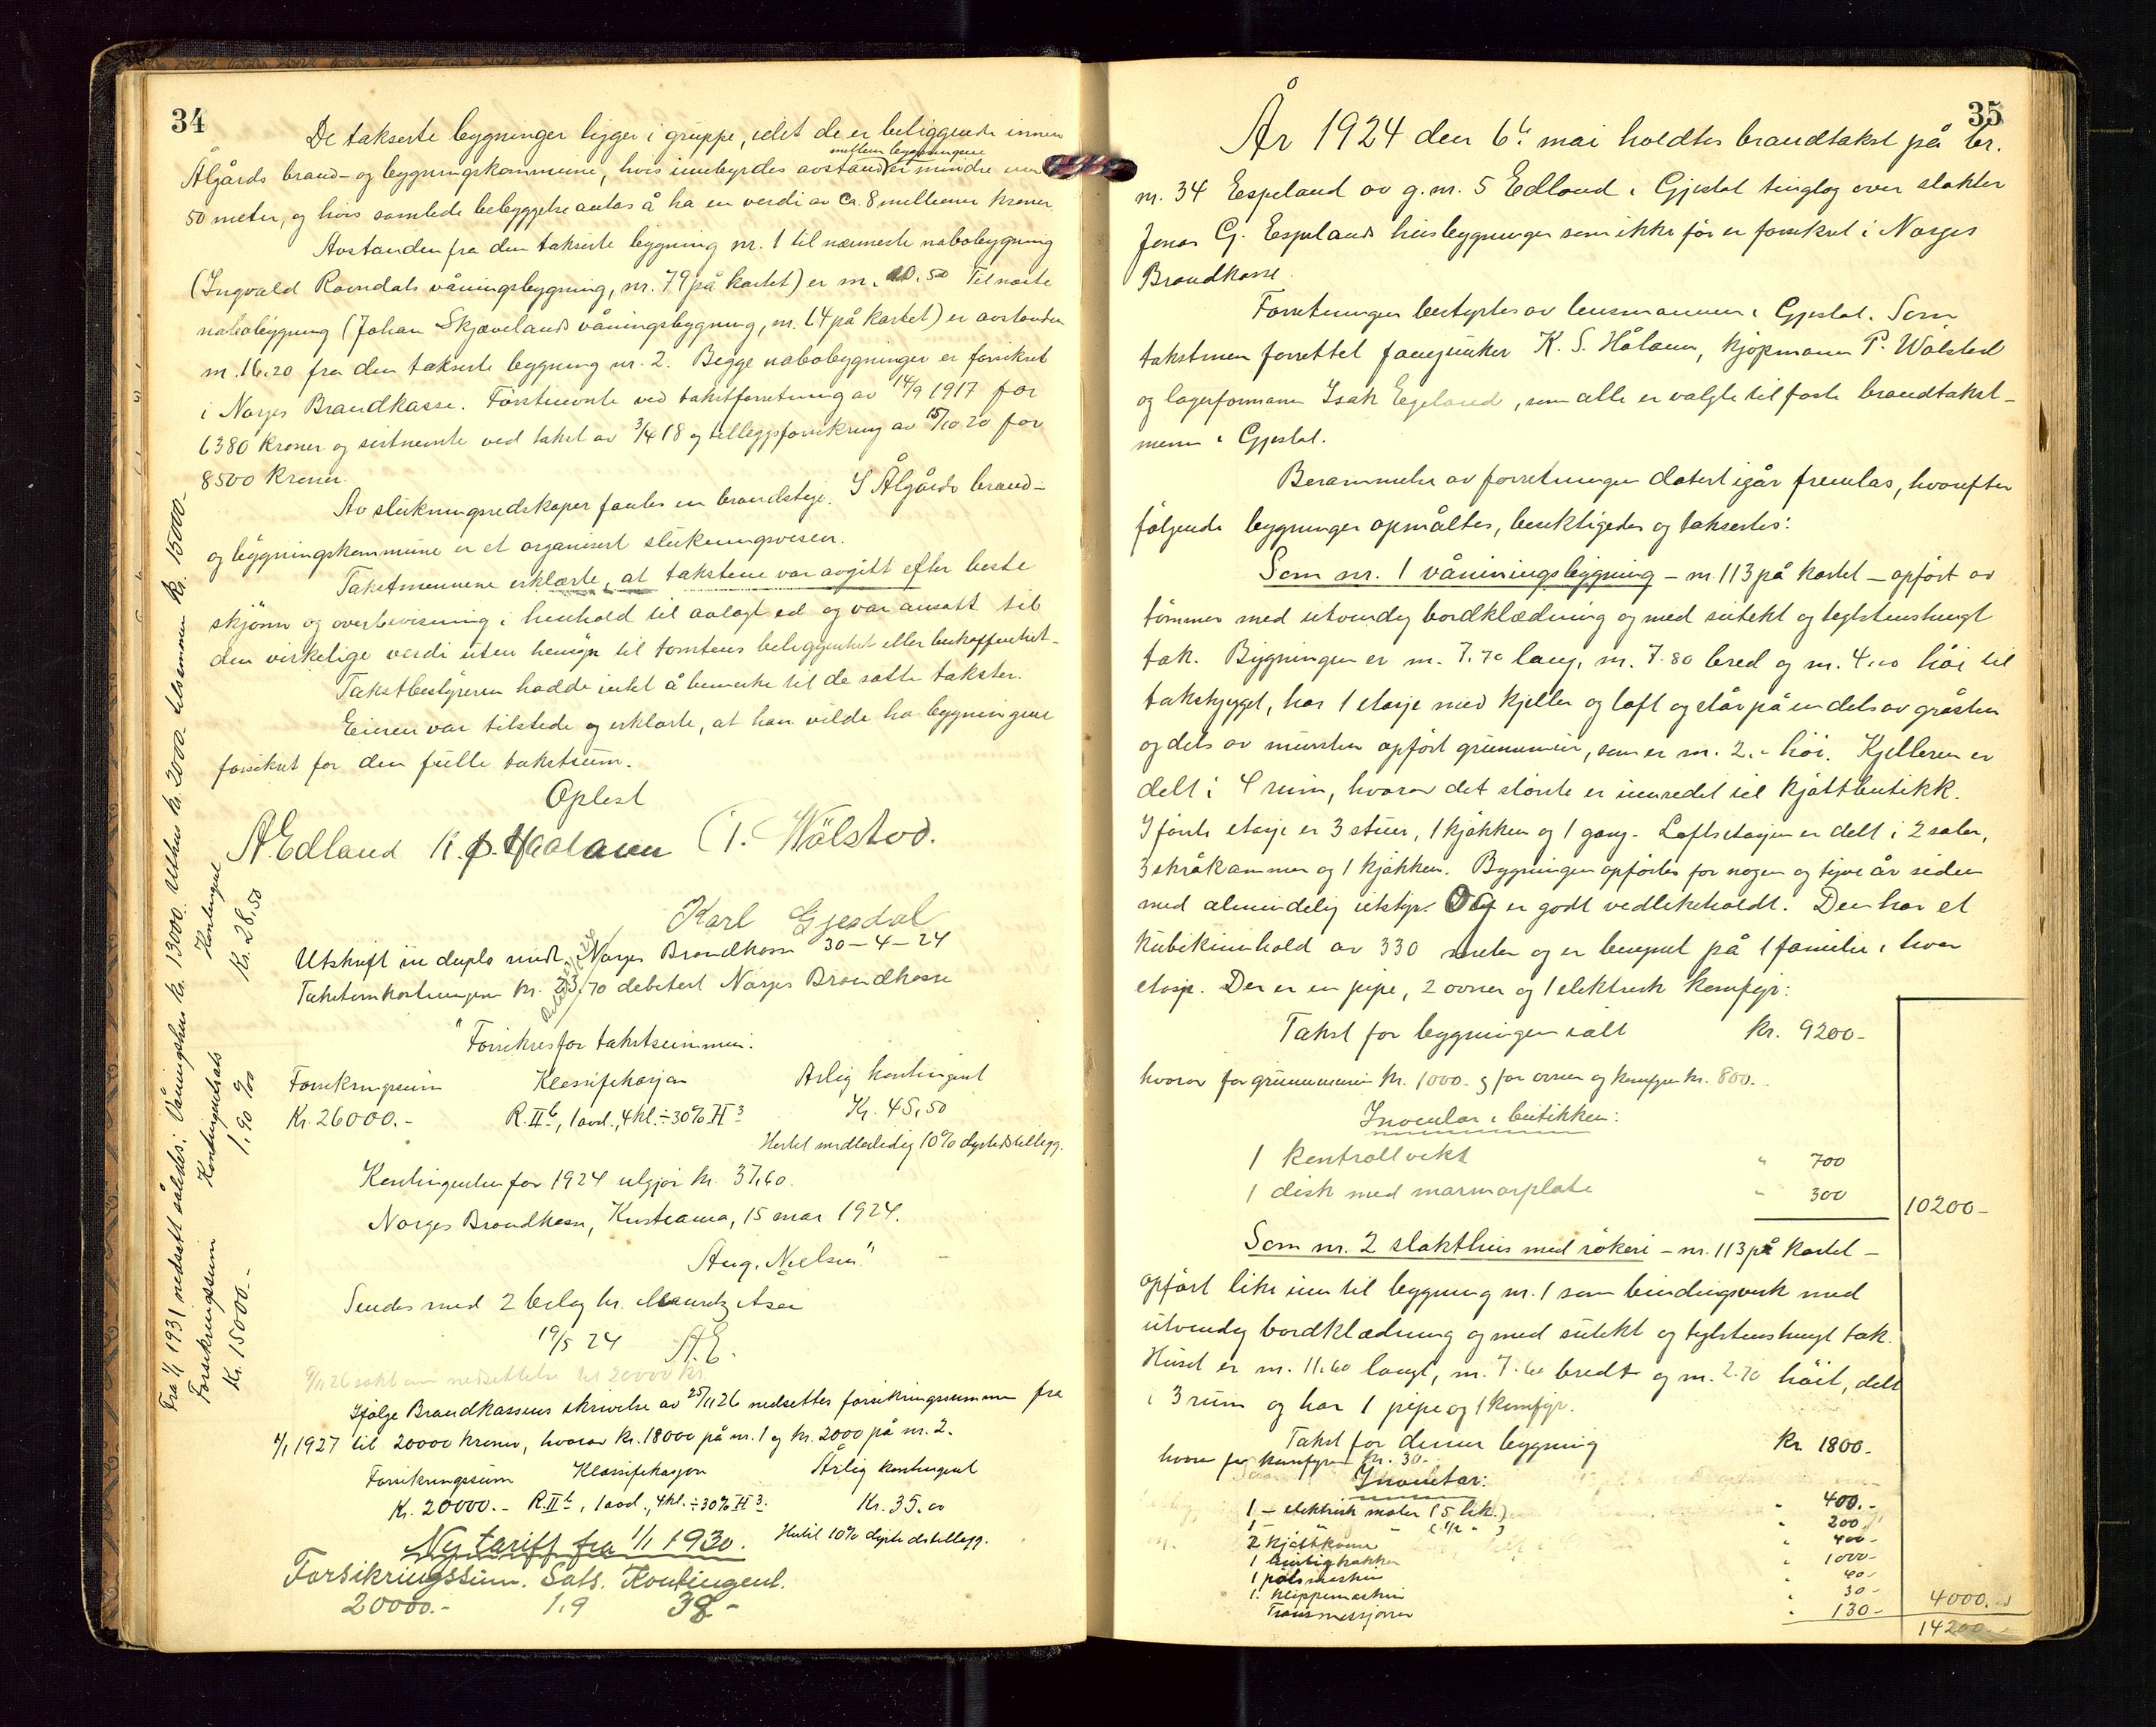 34
De takserte bygninger ligger i gruppe, idet de er beliggende innen
Ålgårds brand- og bygningskommune, hvis innbyrdes avstand mellem bygningene er mindre enn
50 meter, og hvis samlede bebyggelse antas å ha en verdi av ca. 8 millioner kroner.
Avstanden fra den takserte bygning nr. 1 til nærmeste nabobygning
(Ingvald Ravndals våningsbygning, nr. 79 på kartet) er m. 10.50 Til næste
nabobygning (Johan Skjævelands våningsbygning, nr. 64 på kartet) er avstanden
m. 16.20 fra den takserte bygning nr. 2. Begge nabobygninger er forsikret
i Norges Brandkasse. Førstnevnte ved takstforretning av 14/9 1917 for
6380 kroner og sistnevnte ved takst av 3/4 18 og tilleggsforsikring av 15/10 20 for
8500 kroner.
Av slukningsredskaper fantes en brandstige. I Ålgårds brand-
og bygningskommune er et organisert slukningsvesen.
Takstmennene erklærte, at takstene var avgitt efter beste
skjønn og overbevisning i henhold til avlagt ed og var ansatt til
den virkelige verdi uten hensyn til tomtens beliggenhet eller beskaffenhet.
Takstbestyreren hadde intet å bemerke til de satte takster.
Eieren var tilstede og erklærte, at han vilde ha bygningene
forsikret for den fulle takstsum.
Oplest
A. Edland K. S. Haaland T. Wålstod.
Karl Gjesdal
Utskrift in duplo sendt Norges Brandkasse 30-4-24
Takstomkostningene kr. 23,70 debitert Norges Brandkasse
"Forsikres for takstsummen.
Forsikringssum Klassifikasjon Årlig kontingent
Kr. 26000.- R. II b, 1 avd., 4 kl. ÷ 30% H 3 Kr. 45,50
Hertil midlertidig 10% dyrtidstillegg.
Kontingenten for 1924 utgjør kr. 37,60.
Norges Brandkasse, Kristiania, 15 mai 1924.
Aug. Nielsen"
Sendes med 2 bilag hr. Mauritz Asen
19/5 24 A.E.
9/11 26 søkt om nedsettelse til 20000 kr.
Ifølge Brandkassens skrivelse av 25/11 26 nedsettes forsikringssummen fra
1/1 1927 til 20000 kroner, hvorav kr. 18000 på nr. 1 og kr. 2000 på nr. 2.
Forsikringssum Klassifikasjon Årlig kontingent
Kr. 20000.- R. II b, 1 avd., 4 kl. ÷ 30% H 3. Kr. 35.00
Hertil 10% dyrtidstillegg.
Ny tariff fra 1/1 1930.
Forsikringssum. Sats. Kontingent.
20000.- 1,9 38.-
Fra 1/1 1931 nedsatt således: Våningshus kr. 13000. Uthus kr. 2000. tilsammen kr. 15000.
Forsikringssum Kontingentsats Kontingent
Kr. 15000.- 1,90 %00 Kr. 28,50
35
År 1924 den 6te mai holdtes brandtakst på br.
nr. 34 Espeland av g.nr. 5 Edland i Gjestal tinglag over slakter
Jonas G. Espelands husbygninger som ikke før er forsikret i Norges
Brandkasse.
Forretningen bestyrtes av lensmannen i Gjestal. Som
takstmenn forrettet fanejunker K. S. Håland, kjøpmann P. Wålstad
og lagerformann Isak Egeland, som alle er valgte til faste brandtakst-
menn i Gjestal.
Berammelse av forretningen datert igår fremlas, hvorefter
følgende bygninger opmåltes, besiktigedes og taksertes:
Som nr. 1 våningsbygning - nr 113 på kartet - opført av
tømmer med utvendig bordklædning og med sutekt og teglstenshengt
tak. Bygningen er m. 7.70 lang, m. 7.80 bred og m. 4.00 høi til
takskjegget, har 1 etasje med kjeller og loft og står på en dels av gråsten
og dels av mursten opført grunnmur, som er m. 2.- høi. Kjelleren er
delt i 4 rum, hvorav det største er innredet til kjøttbutikk.
I første etasje er 3 stuer, 1 kjøkken og 1 gang. Loftsetasjen er delt i 2 saler,
3 skråkammer og 1 kjøkken. Bygningen opførtes for nogen og tyve år siden
med almindelig utstyr. Og er godt vedlikeholdt. Den har et
kubikinnhold av 330 meter og er beregnet på 1 familie i hver
etasje. Der er en pipe, 2 ovner og 1 elektrisk komfyr:
Takst for bygningen ialt kr. 9200-
hvorav for grunnmuren kr. 1000.- og for ovner og komfyr kr. 800.-
Inventar i butikken:
1 kontrollvekt " 700
1 disk med marmorplate " 300
10200-
Som nr. 2 slakthus med røkeri - nr. 113 på kartet -
opført like inn til bygning nr. 1 som bindingsverk med
utvendig bordklædning og med sutekt og teglstenshengt tak.
Huset er m. 11.60 langt, m. 7.60 bredt og m. 2.70 høit, delt
i 3 rum og har 1 pipe og 1 komfyr.
Takst for denne bygning kr. 1800.-
hvorav for komfyren kr. 30.-
Inventar:
1 - elektrisk motor (5 hk.) " 400.-
1 - " - (1/2 - ) " 200.-
2 kjøttkverner " 400-
1 hurtighakker " 1000-
1 pølsemaskin " 40-
1. klippemaskin " 30-
Transmissjoner " 130-
4000.00
14200-